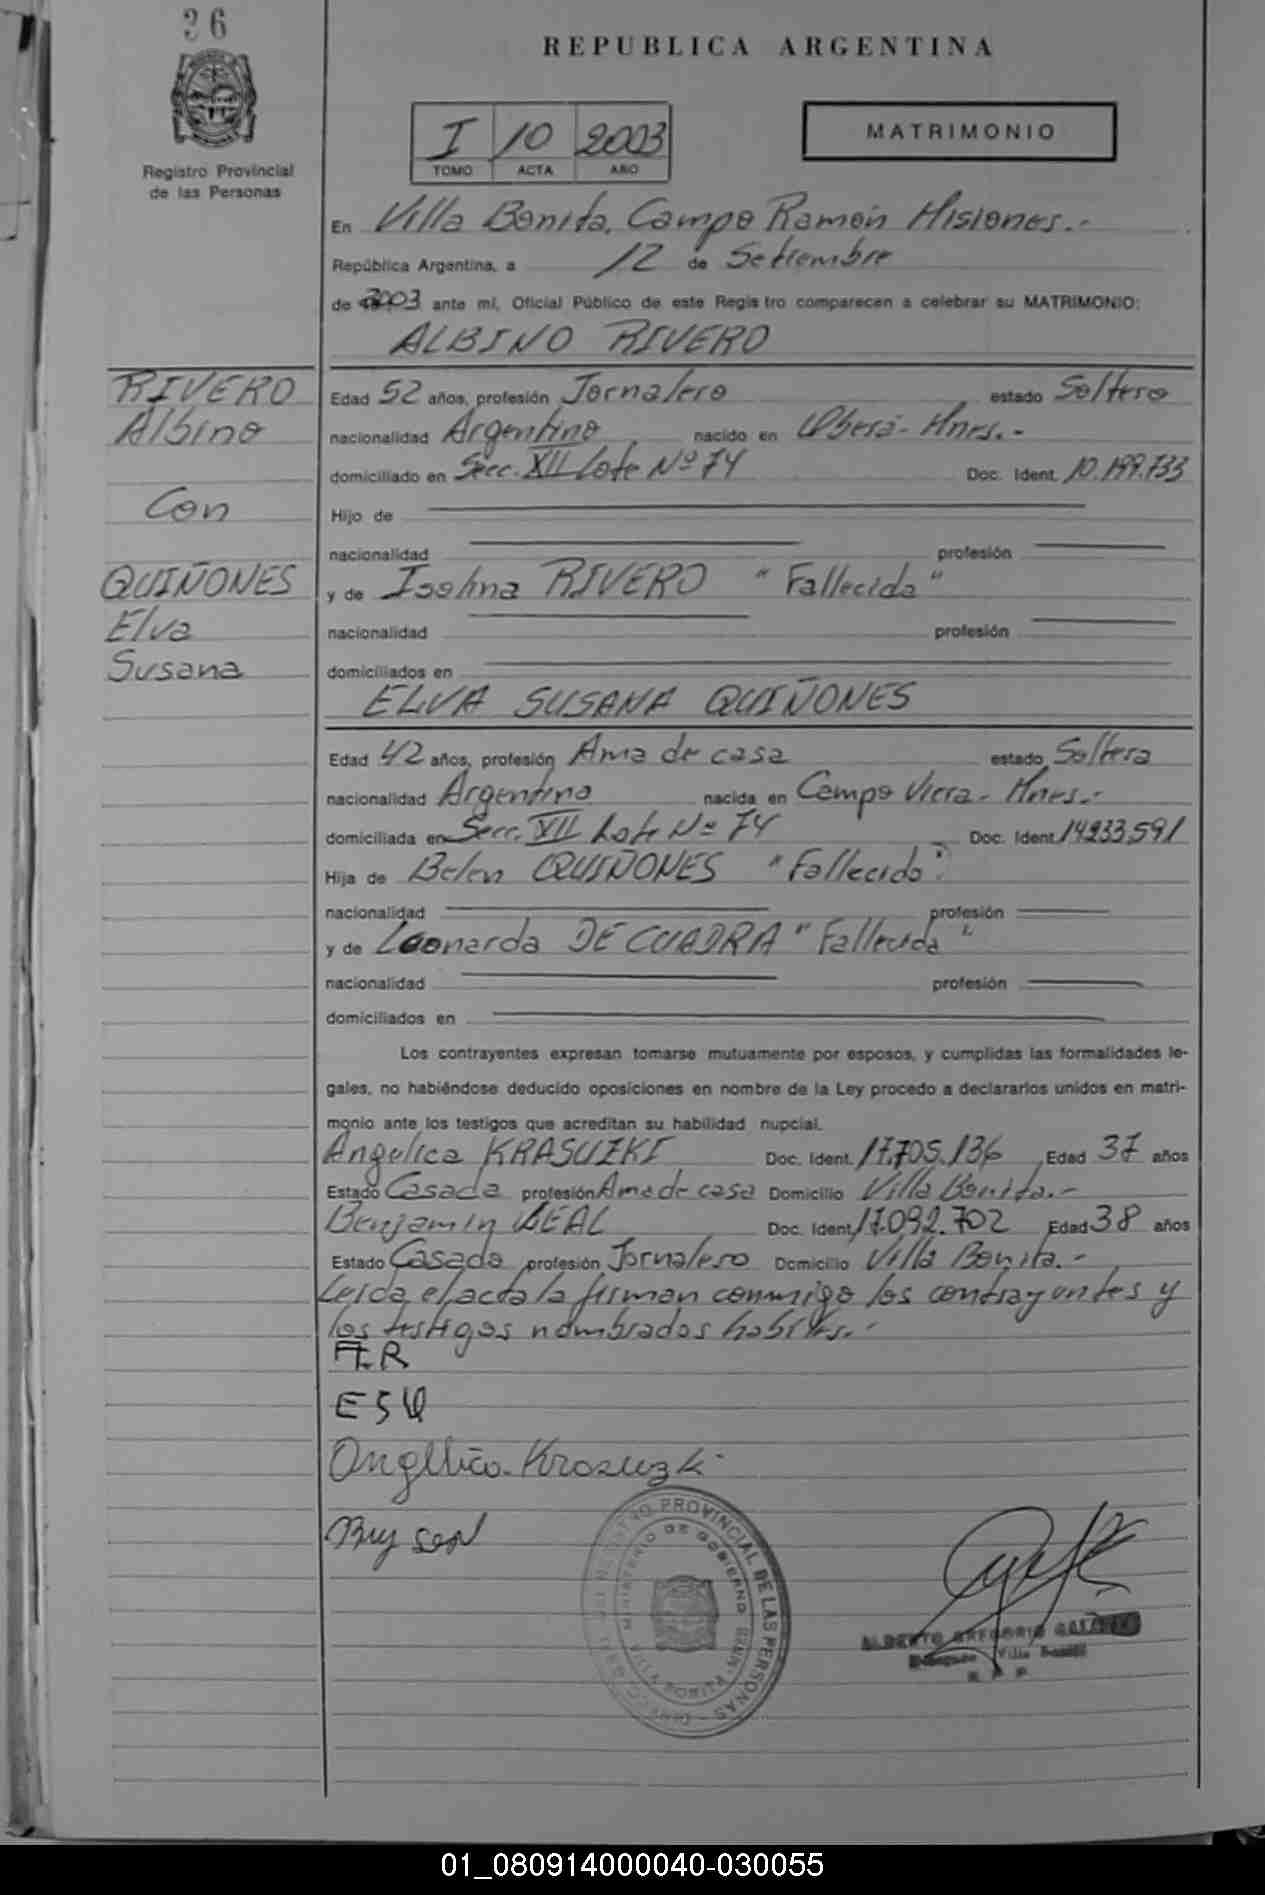 26
REPUBLICA ARGENTINA
Registro Provincial
de las Personas
I 10 2003
TOMO ACTA AÑO
MATRIMONIO
En Villa Bonita, Campo Ramón Misiones.-
República Argentina, a 12 de Setiembre
de 2003 ante mí, Oficial Público de este Registro comparecen a celebrar su MATRIMONIO:
ALBINO RIVERO
RIVERO
Albino
Con
QUIÑONES
Elva
Susana
Edad 52 años, profesión Jornalero estado Soltero
nacionalidad Argentino nacido en Oberá- Mnes.-
domiciliado en Secc. XII Lote Nº 74 Doc. Ident. 10.199.733
Hijo de
nacionalidad profesión
y de Isolina RIVERO "Fallecida"
nacionalidad profesión
domiciliados en
ELVA SUSANA QUIÑONES
Edad 42 años, profesión Ama de casa estado Soltera
nacionalidad Argentina nacida en Campo Viera- Mnes.-
domiciliada en Secc. VII Lote Nº 74 Doc. Ident. 14233.591
Hija de Belen QUIÑONES "Fallecido".
nacionalidad profesión
y de Leonarda DE CUADRA "Fallecida"
nacionalidad profesión
domiciliados en
Los contrayentes expresan tomarse mutuamente por esposos, y cumplidas las formalidades le-
gales, no habiéndose deducido oposiciones en nombre de la Ley procedo a declararlos unidos en matri-
monio ante los testigos que acreditan su habilidad nupcial.
Angelica KRASUZKI Doc. Ident. 17.705.136 Edad 37 años
Estado Casada profesión Ama de casa Domicilio Villa Bonita.-
Benjamin LEAL Doc. Ident. 17.092.702 Edad 38 años
Estado Casado profesión Jornalero Domicilio Villa Bonita.-
Leida el acta la firman conmigo los contrayentes y
los testigos nombrados habiles.-
A.R
ESQ
Angellica Krasuzki
REGISTRO PROVINCIAL DE LAS PERSONAS
MINISTERIO DE GOBIERNO
VILLA BONITA
ALBERTO GREGORIO
Villa Bonita
R. P. P.
01_080914000040-030055